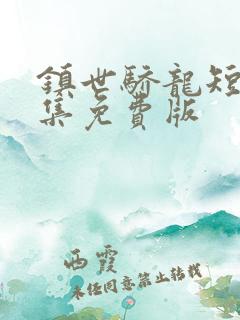 鎮世驕龍短
集免費版
西霞
未经同意禁止转载